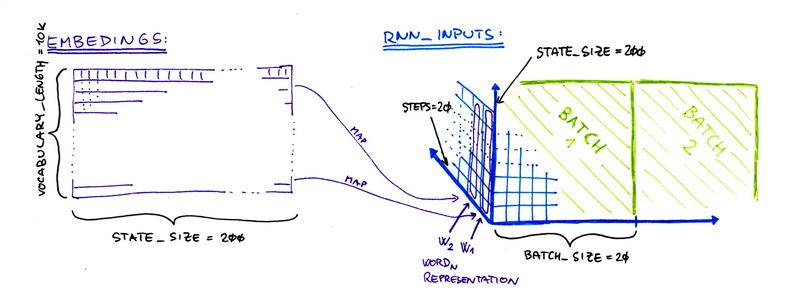 EMBEDINGS:
VOCABULARY_LENGTH = 10K
STATE_SIZE = 200
MAP
MAP
RNN_INPUTS:
STATE_SIZE = 200
STEPS=20
BATCH
1
BATCH
2
W2 W1
WORDN
REPRESENTATION
BATCH_SIZE=20